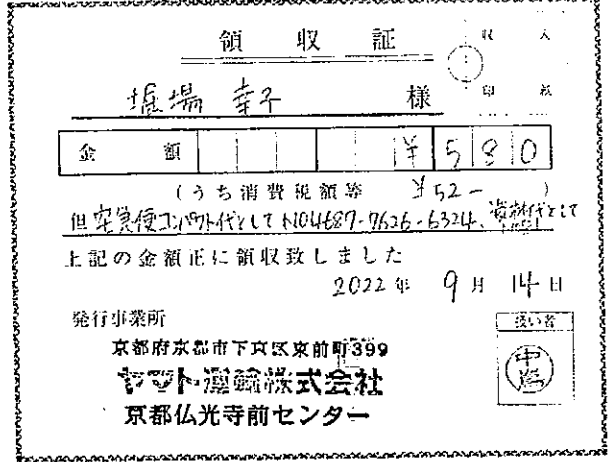 領収証
収入印紙
堀場 幸子 様
金額 ¥580
(うち消費税額等 ¥52-)
但 宅急便コンパクト代として NO4687-7626-6324、資材代として
上記の金額正に領収致しました
2022年 9月 14日
発行事業所
扱い者
京都府京都市下京区東前町399
ヤマト運輸株式会社
京都仏光寺前センター